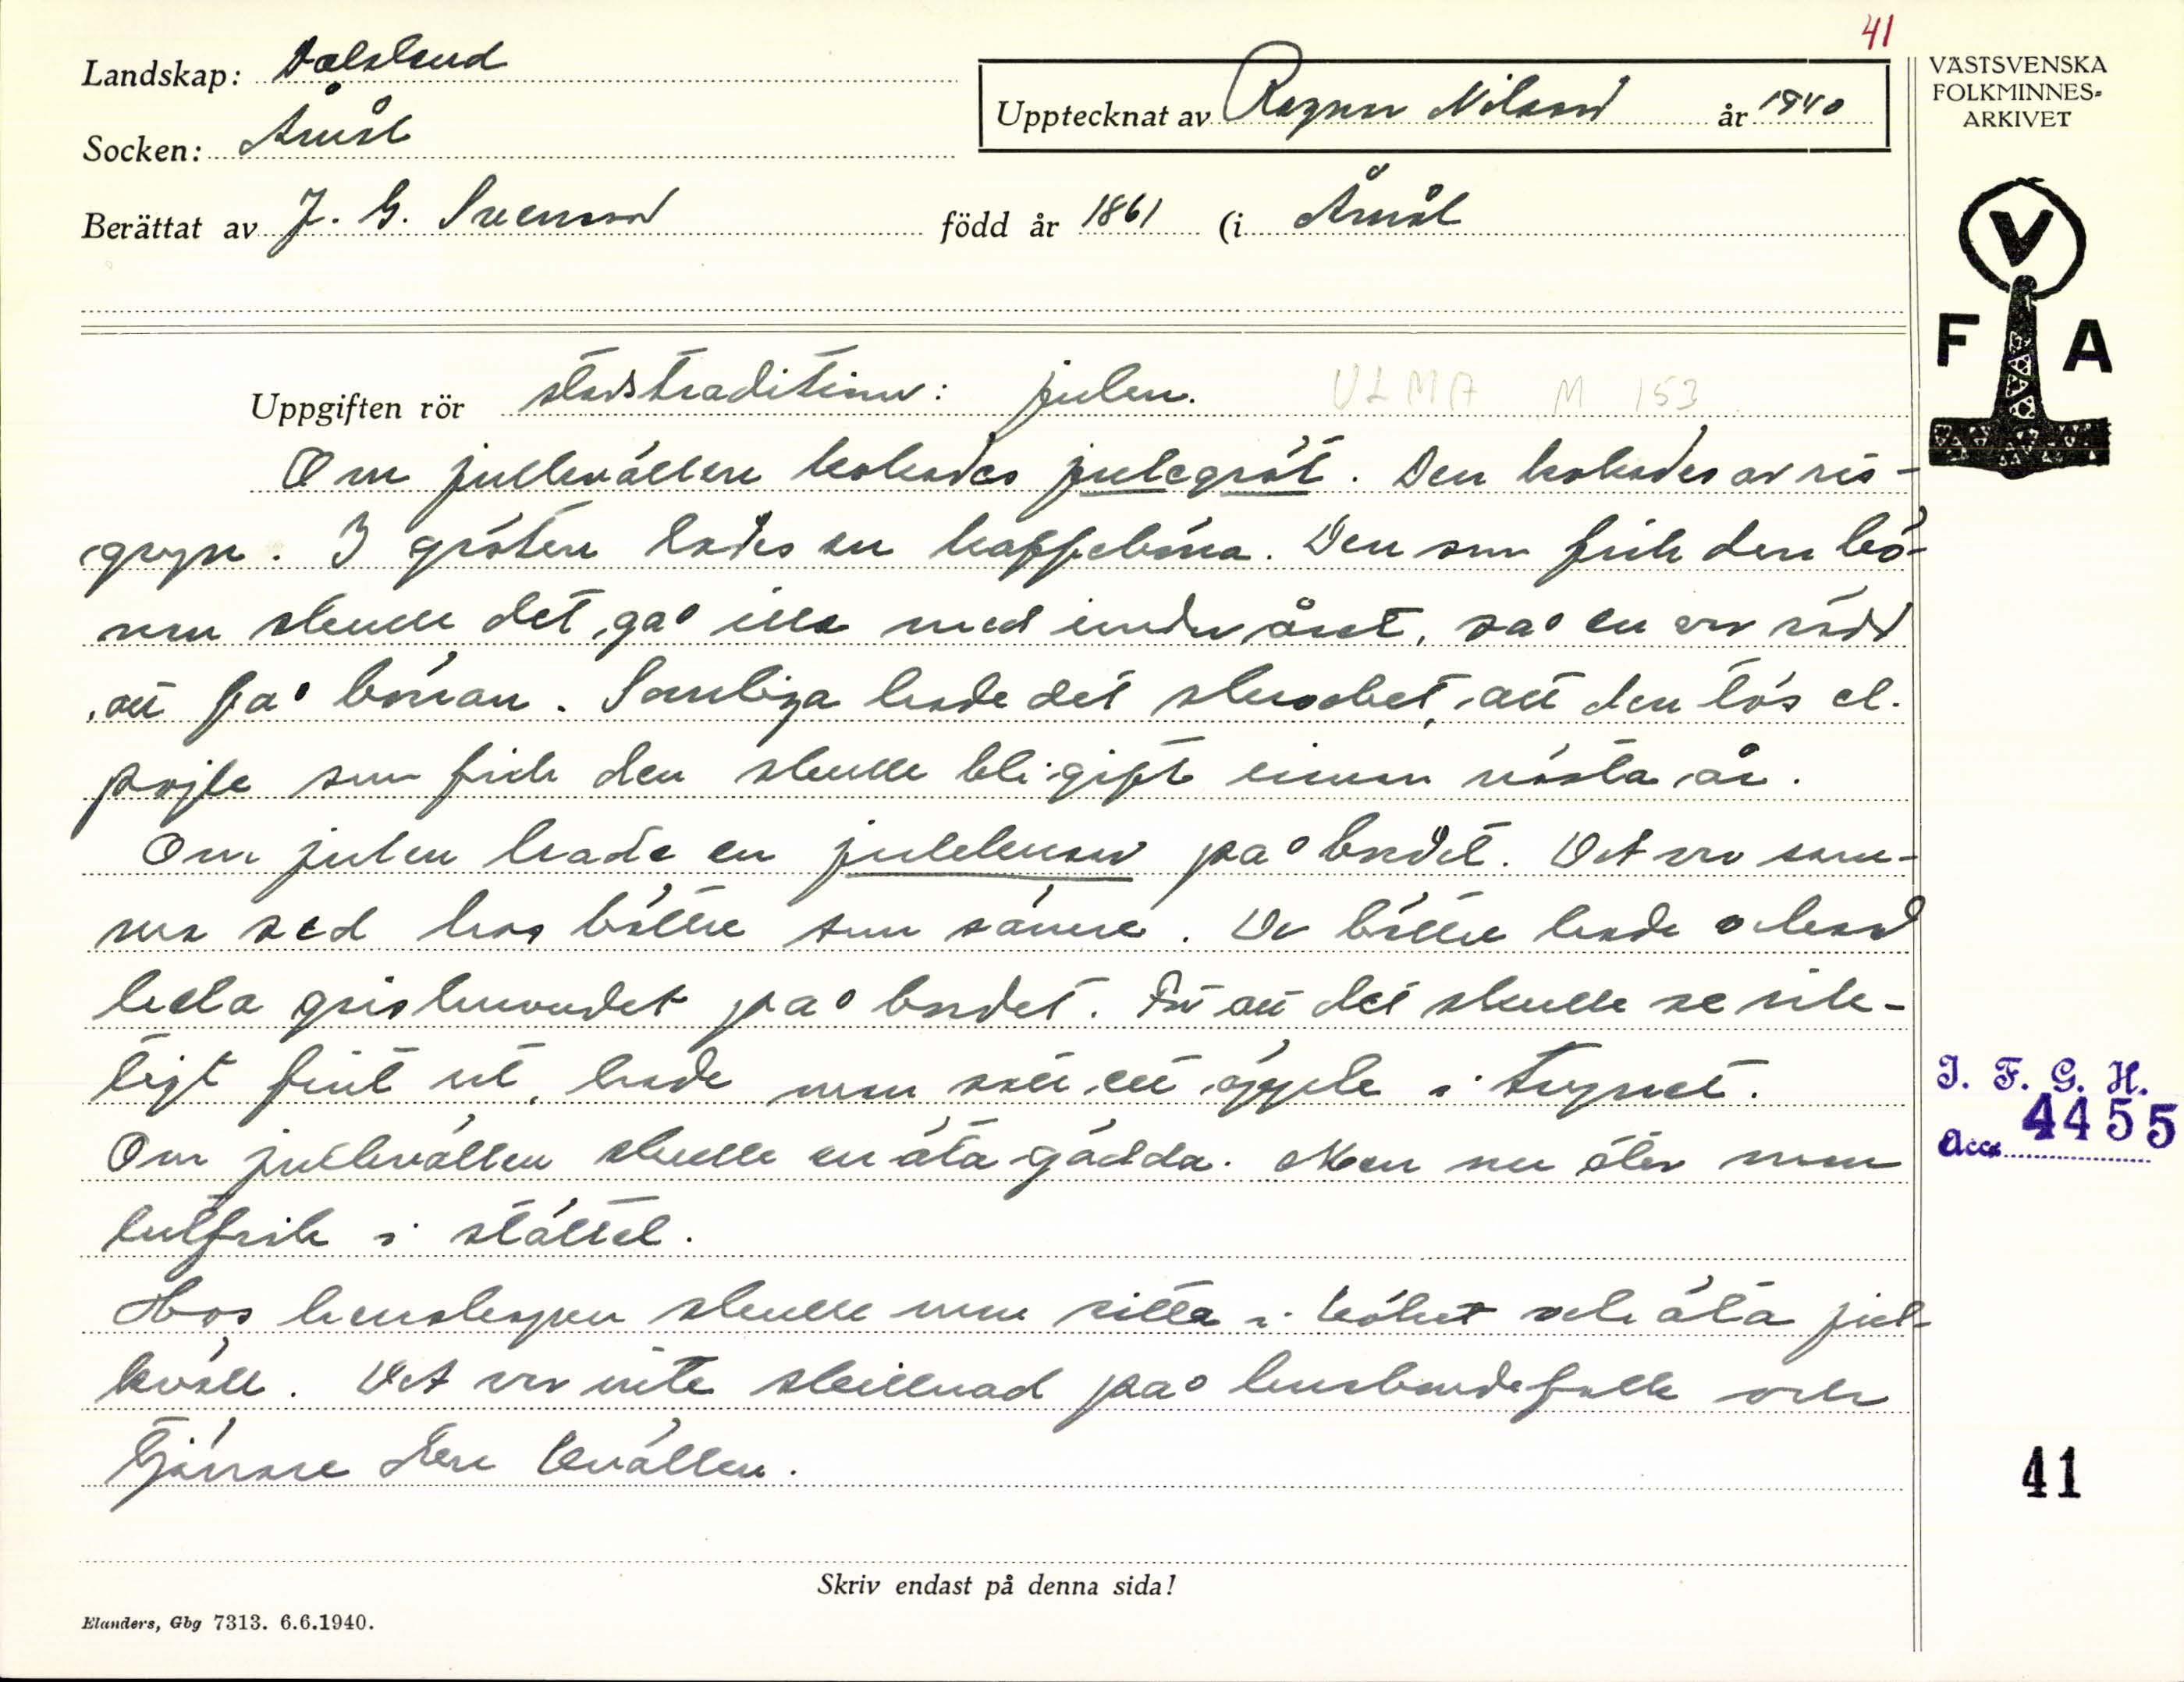 41
Landskap: Dalsland
Upptecknat av Ragnar Nilsson år 1940
VÄSTSVENSKA
FOLKMINNES-
ARKIVET
Socken: Åmål
Berättat av J. G. Svensson född år 1861 (i Åmål
V
F A
Uppgiften rör stadstraditioner: julen. ULMA M 153
Om julkvällen kokades julegröt. Den kokades av ris-
gryn. I gröten lades en kaffeböna. Den som fick den bö-
nan skulle det gå illa med under året, så en var rädd
att få bönan. Somliga hade det skrocket, att den tös el.
pojke som fick den skulle bli gift innan nästa år.
Om julen hade en julekusar på bordet. Det var sam-
ma sed hos bättre som sämre. De bättre hade också
hela grishuvudet på bordet. För att det skulle se rik-
tigt fint ut, hade man satt ett äpple i trynet.
Om julkvällen skulle en äta gädda. Men nu äter man
lutfisk i stället.
Hos herrskapen skulle man sitta i köket och äta jul-
kväll. Det var inte skillnad på husbondefolk och
tjänare den kvällen.
I. F. G. H.
Acc. 4455
41
Skriv endast på denna sida!
Elanders, Gbg 7313. 6.6.1940.